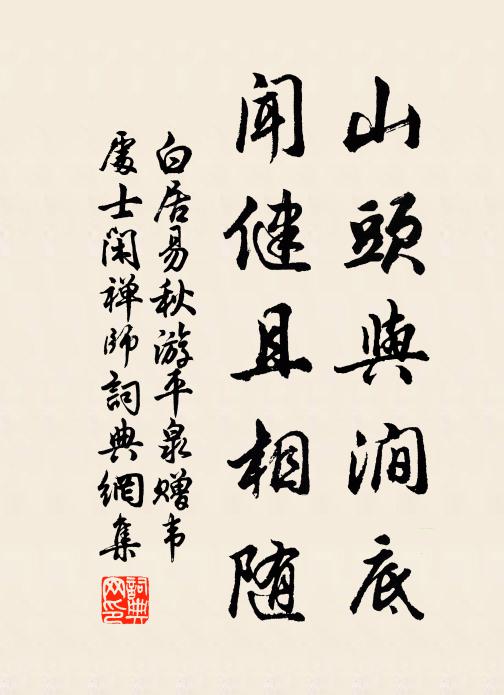 山頭與澗底
聞健且相随
白居易秋游平泉赠韦
處士閑禅師詞典網集
詞典网印